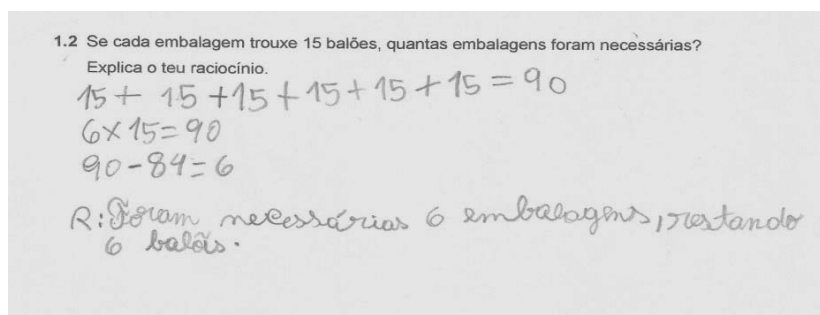 1.2 Se cada embalagem trouxe 15 balões, quantas embalagens foram necessárias?
Explica o teu raciocínio.
15 + 15 + 15 + 15 + 15 + 15 = 90
6 x 15 = 90
90 - 84 = 6
R: Foram necessárias 6 embalagens, restando
6 balõs.